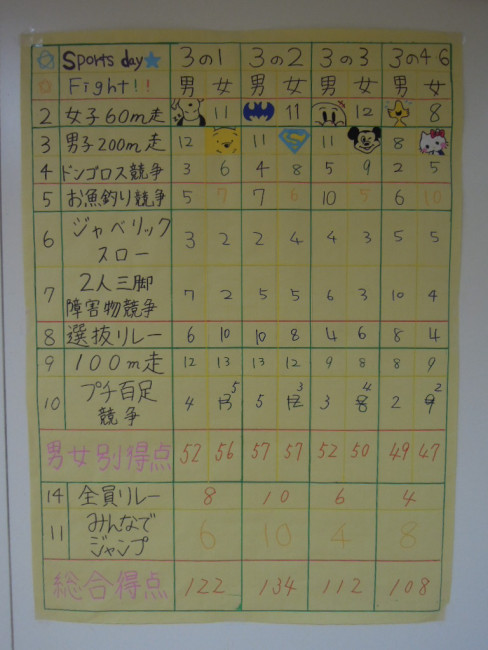 Sports day 3の1 3の2 3の3 3の4 6
Fight!! 男 女 男 女 男 女 男 女
2 女子60m走 11 11 12 8
3 男子200m走 12 11 11 8
4 ドンゴロス競争 3 6 4 8 5 9 2 5
5 お魚釣り競争 5 7 7 6 10 5 6 10
6 ジャベリック
スロー 3 2 2 4 4 3 5 5
7 2人三脚
障害物競争 7 2 5 5 6 3 10 4
8 選抜リレー 6 10 10 8 4 6 8 4
9 100m走 12 13 13 12 9 8 8 9
10 プチ百足
競争 4 5 5 3 3 4 2 2
男女別得点 52 56 57 57 52 50 49 47
14 全員リレー 8 10 6 4
11 みんなで
ジャンプ 6 10 4 8
総合得点 122 134 112 108